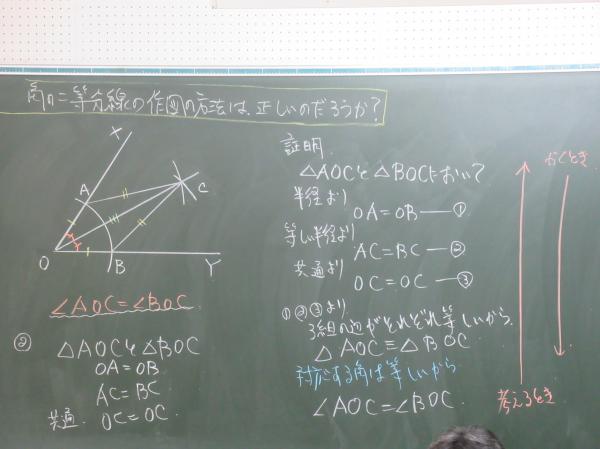 角の二等分線の作図の方法は、正しいのだろうか?
X
A
C
O
B
Y
∠AOC=∠BOC
②
△AOCと△BOC
OA=OB
AC=BC
共通 OC=OC
証明
△AOCと△BOCにおいて
半径より
OA=OB―①
等しい半径より
AC=BC―②
共通より
OC=OC―③
①②③より
3組の辺がそれぞれ等しいから
△AOC≡△BOC
対応する角は等しいから
∠AOC=∠BOC
かくとき
考えるとき